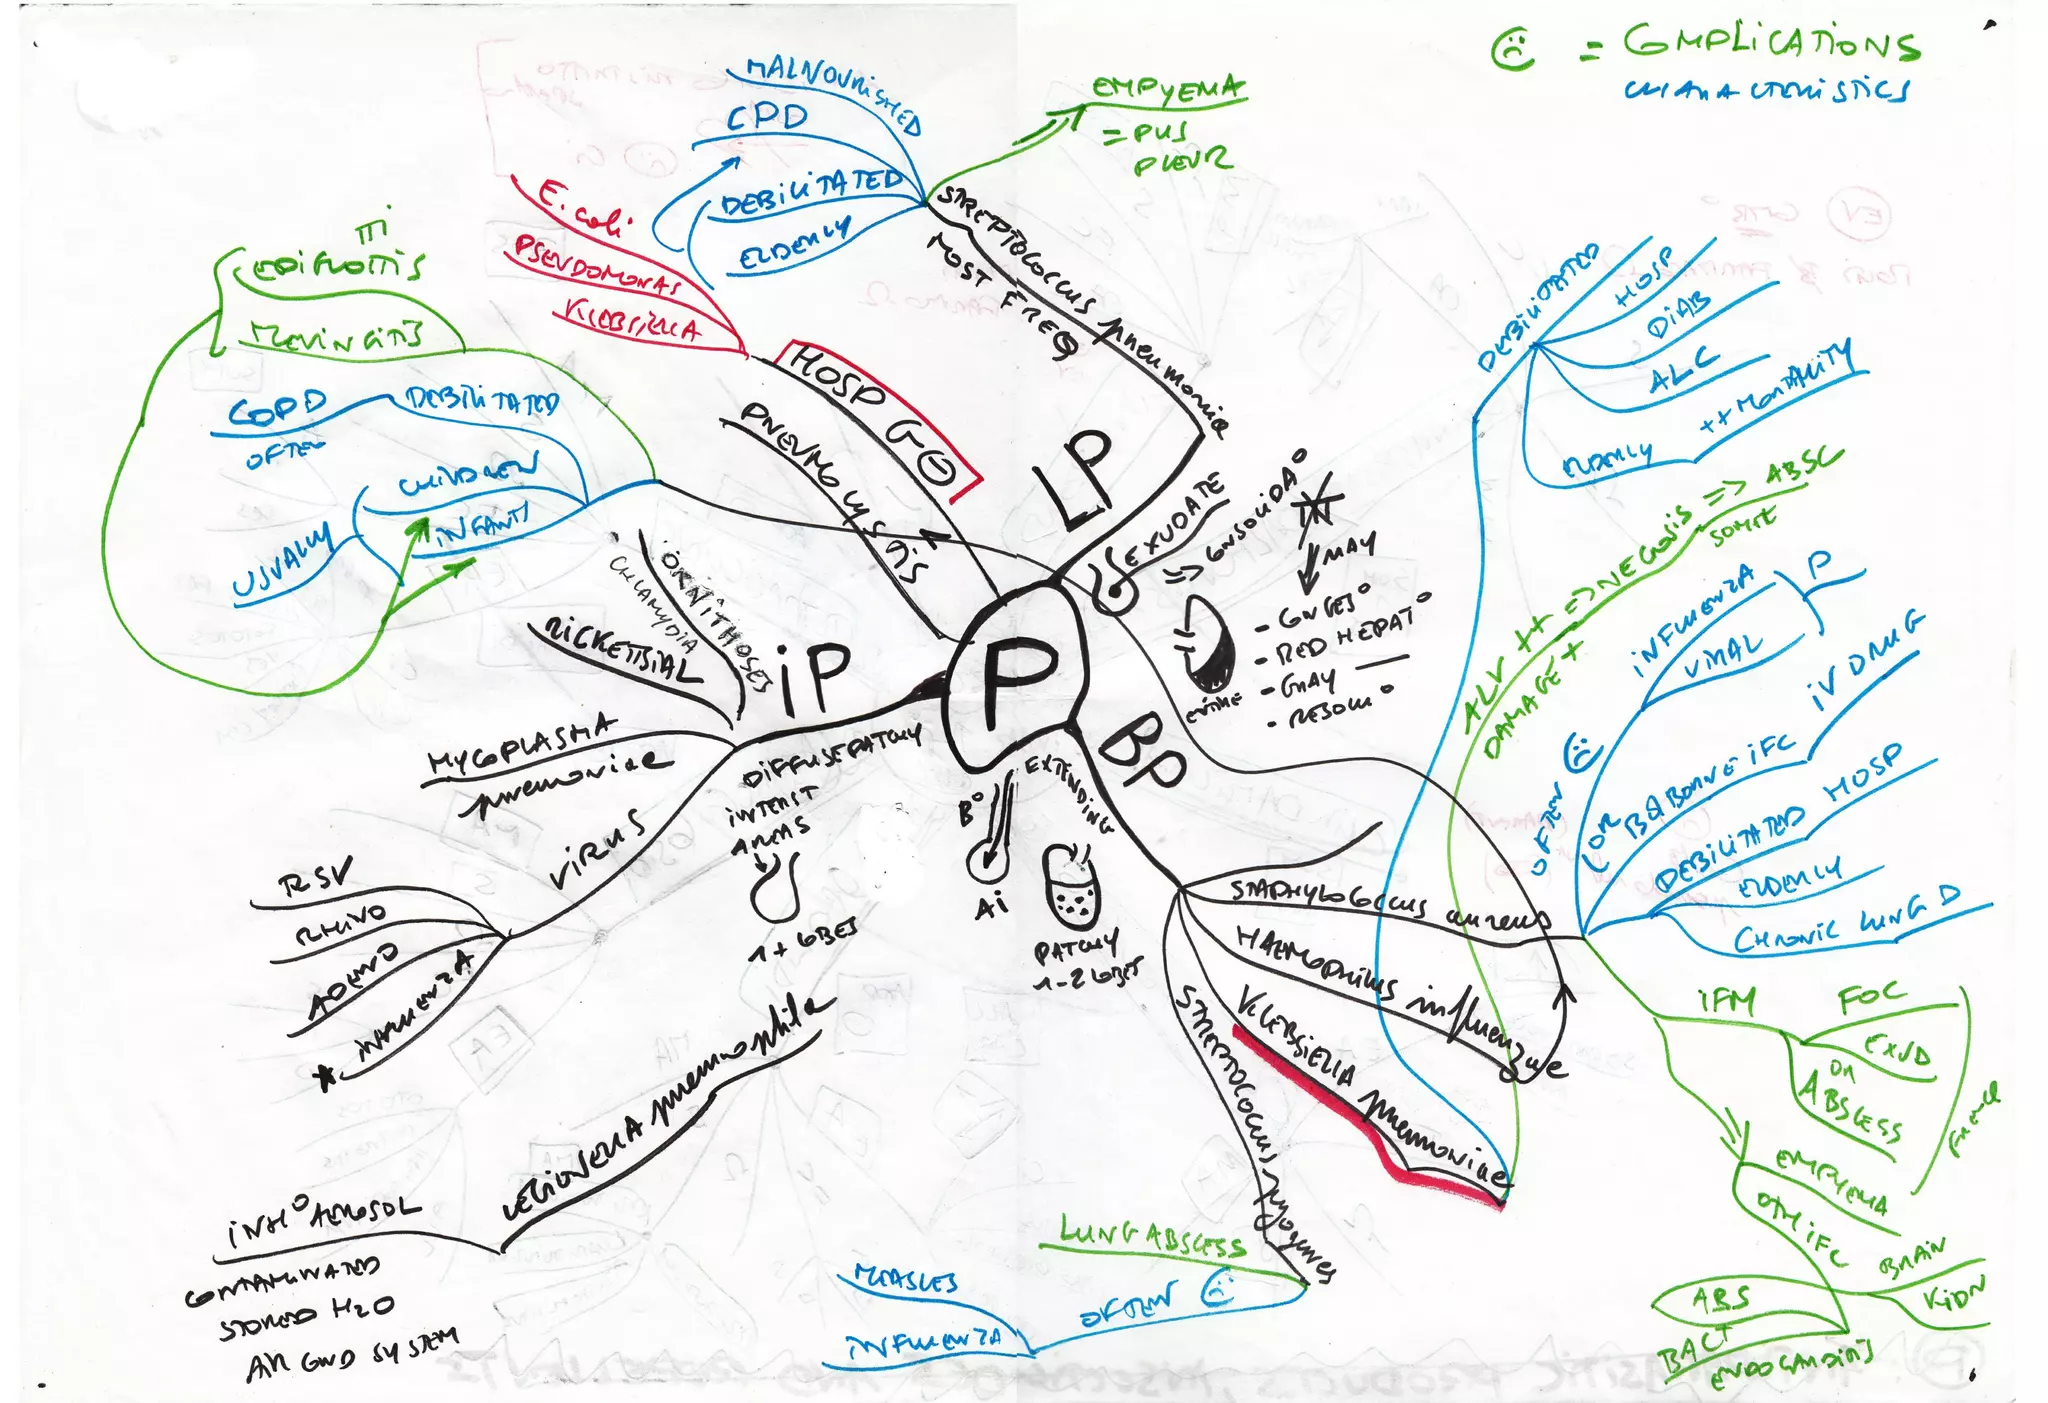 ☹ = COMPLICATIONS
CHARACTERISTICS
MALNOURISHED
CPD
DEBILITATED
ELDERLY
EMPYEMA
= PUS
PLEUR
STREPTOCOCCUS pneumoniae
MOST FREQ
E. coli
PSEUDOMONAS
KLEBSIELLA
HOSP G⊖
PNEUMOCYSTIS
EPIGLOTTIS
ITI
MENINGITIS
COPD
OFTEN
DEBILITATED
CHILDREN
INFANTS
USUALLY
ORNITHOSES
CHLAMYDIA
RICKETTSIAL
MYCOPLASMA
pneumoniae
VIRUS
RSV
RHINO
ADENO
* INFLUENZA
LEGIONELLA pneumophila
INH° AEROSOL
CONTAMINATED
STORED H2O
AIR COND SYSTEM
iP
DIFFUSE PATCHY
INTERST
AREAS
1+ LOBES
P
LP
EXUDATE
=> CONSOLIDA°
MAY
- CONGES°
- RED HEPAT°
- GRAY —
- RESOLU°
ENTIRE
BP
EXTENDING
B°
Ai
PATCHY
1-2 LOBES
STAPHYLOCOCCUS aureus
HAEMOPHILUS influenzae
KLEBSIELLA pneumoniae
STREPTOCOCCUS pyogenes
LUNG ABSCESS
OFTEN ☹
MEASLES
INFLUENZA
DEBILITATED
HOSP
DIAB
ALC
ELDERLY
++ MORTALITY
ALV ++ => NECROSIS => ABSC
DAMAGE +
SOMET
OFTEN ☹
INFLUENZA
VIRAL
P
(OR BL BORNE IFC
IV DRUG
DEBILITATED HOSP
ELDERLY
CHRONIC LUNG D
IFM
FOC
EXUD
OR
ABSCESS
EMPYEMA
OTH IFC
BRAIN
KIDN
ABS
BACT
ENDOCARDITIS